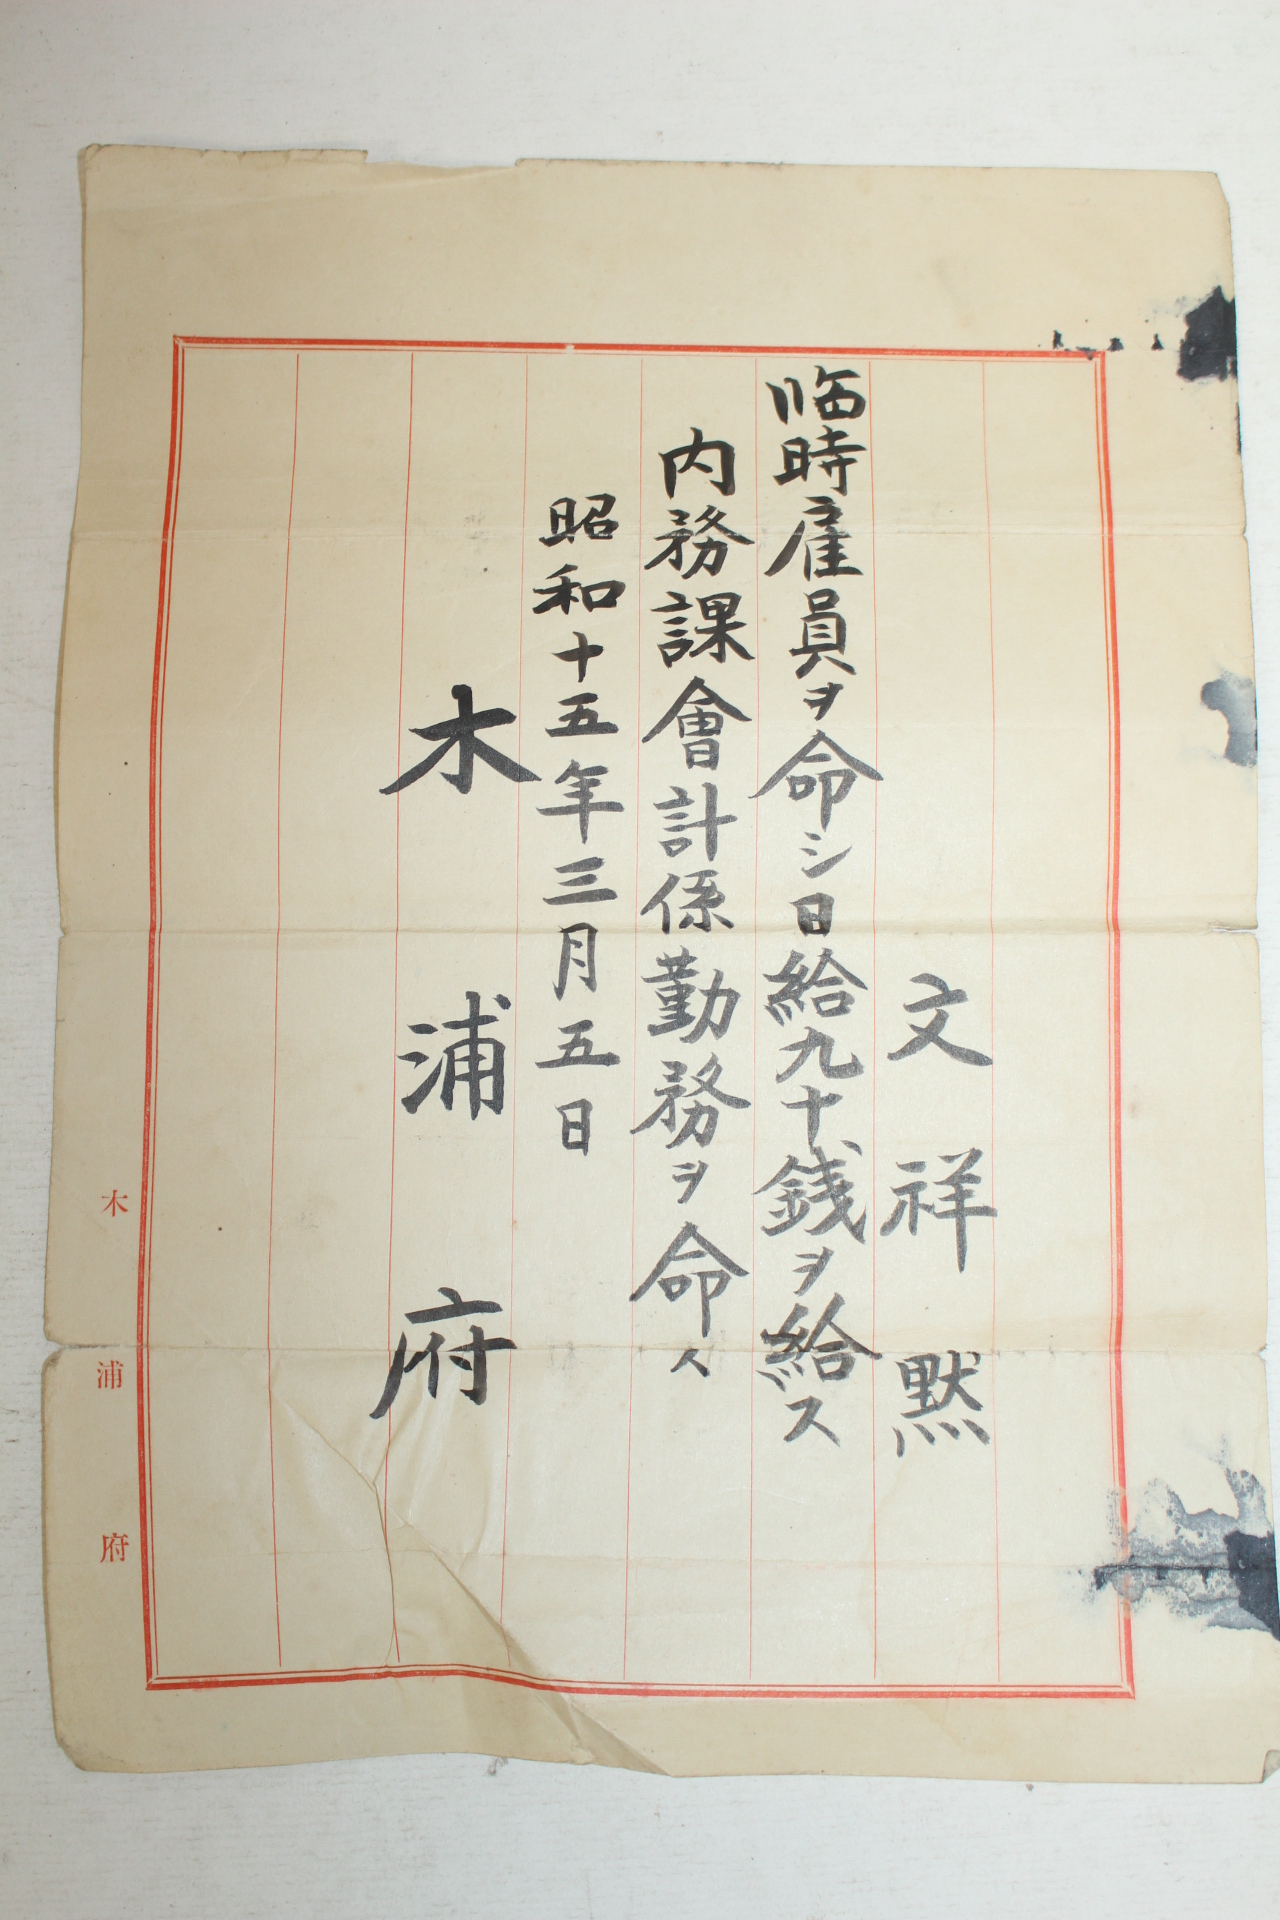 文祥黙
臨時雇員ヲ命シ日給九十銭ヲ給ス
内務課會計係勤務ヲ命ス
昭和十五年三月五日
木浦府
木浦府